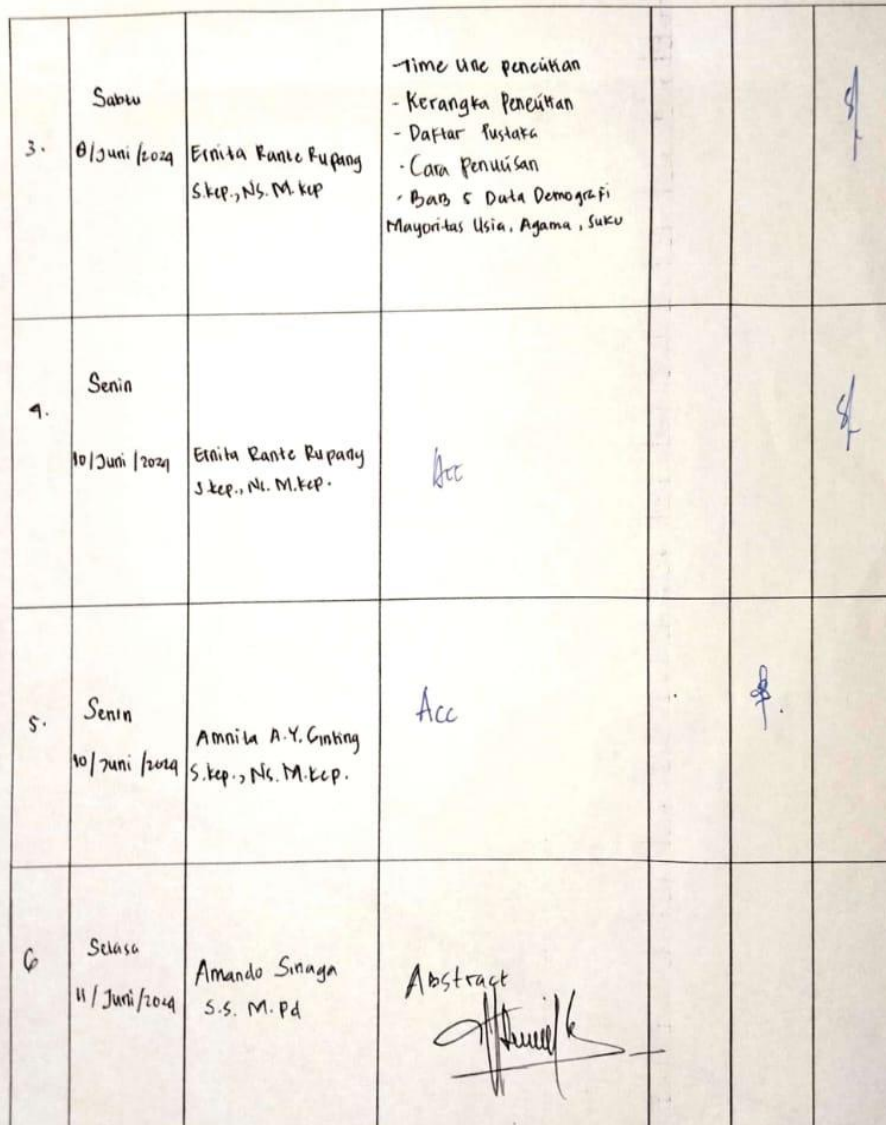 3.
Sabtu
8/Juni/2024
Ernita Rante Rupang
S.kep., Ns. M.kep
-Time Line penelitian
- Kerangka Penelitian
- Daftar Pustaka
- Cara Penulisan
- Bab 5 Data Demografi
Mayoritas Usia, Agama, Suku
4.
Senin
10/Juni/2024
Ernita Rante Rupang
S.kep., Ns. M.kep.
Acc
5.
Senin
10/Juni/2024
Amnita A.Y. Ginting
S.kep., Ns. M.kep.
Acc
6
Selasa
11/Juni/2024
Amando Sinaga
S.S. M.Pd
Abstract